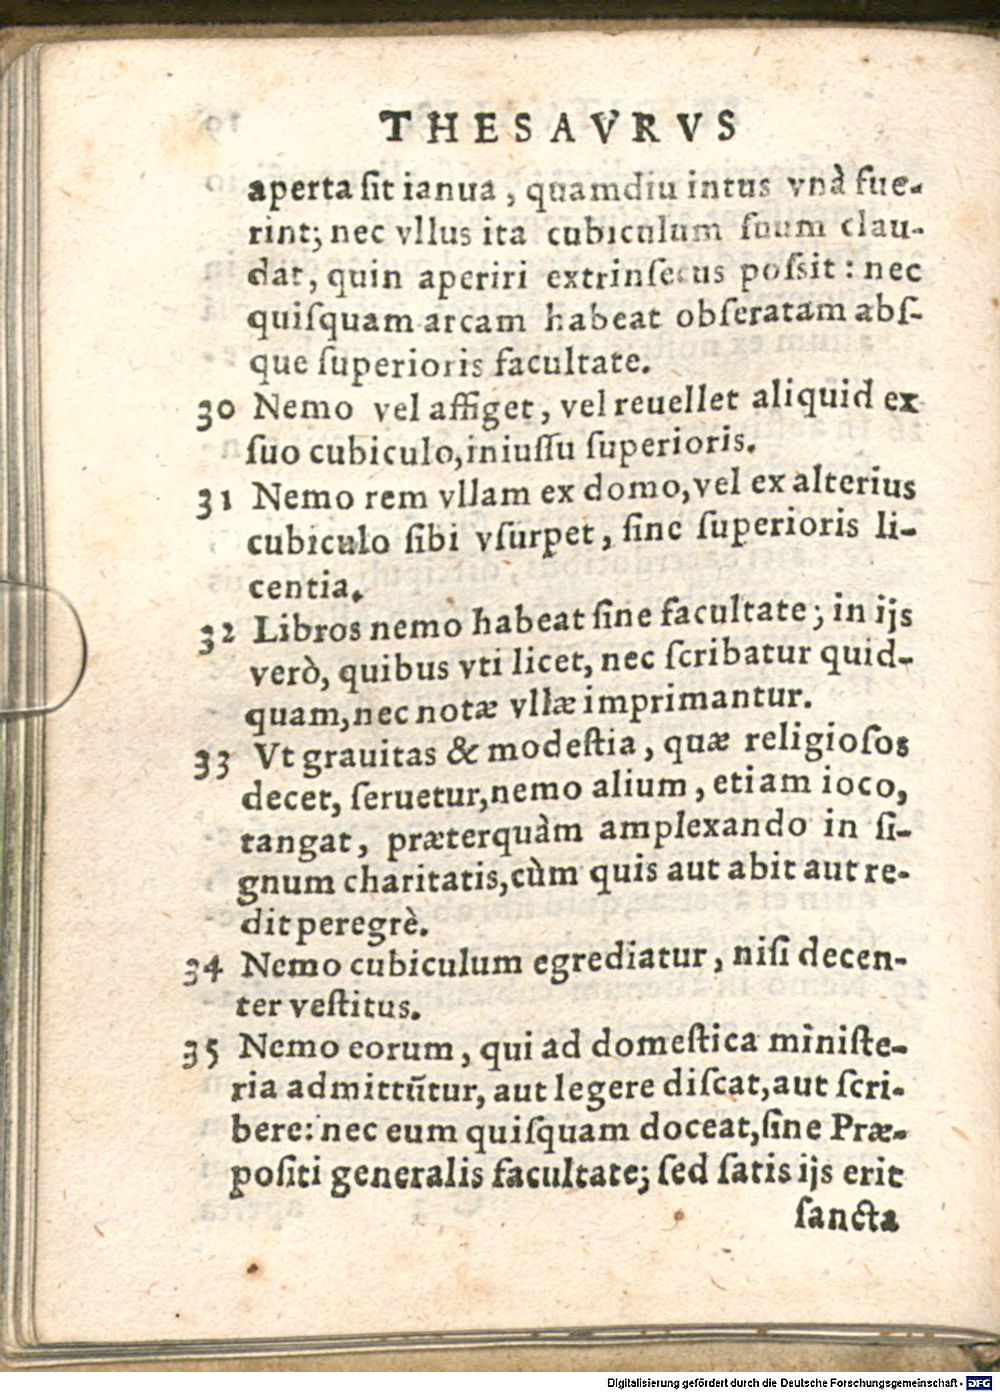 THESAVRVS
aperta ſit ianua, quamdiu intus vnà fue-
rint; nec vllus ita cubiculum ſuum clau-
dat, quin aperiri extrinſecus poſsit: nec
quiſquam arcam habeat obſeratam abſ-
que ſuperioris facultate.
30 Nemo vel affiget, vel reuellet aliquid ex
ſuo cubiculo, iniuſſu ſuperioris.
31 Nemo rem vllam ex domo, vel ex alterius
cubiculo ſibi vſurpet, ſine ſuperioris li-
centia.
32 Libros nemo habeat ſine facultate; in ijs
verò, quibus vti licet, nec ſcribatur quid-
quam, nec notæ vllæ imprimantur.
33 Vt grauitas & modeſtia, quæ religioſos
decet, ſeruetur, nemo alium, etiam ioco,
tangat, præterquàm amplexando in ſi-
gnum charitatis, cùm quis aut abit aut re-
dit peregrè.
34 Nemo cubiculum egrediatur, niſi decen-
ter veſtitus.
35 Nemo eorum, qui ad domeſtica miniſte-
ria admittũtur, aut legere diſcat, aut ſcri-
bere: nec eum quiſquam doceat, ſine Præ-
poſiti generalis facultate; ſed ſatis ijs erit
ſancta
Digitalisierung gefördert durch die Deutsche Forschungsgemeinschaft - DFG